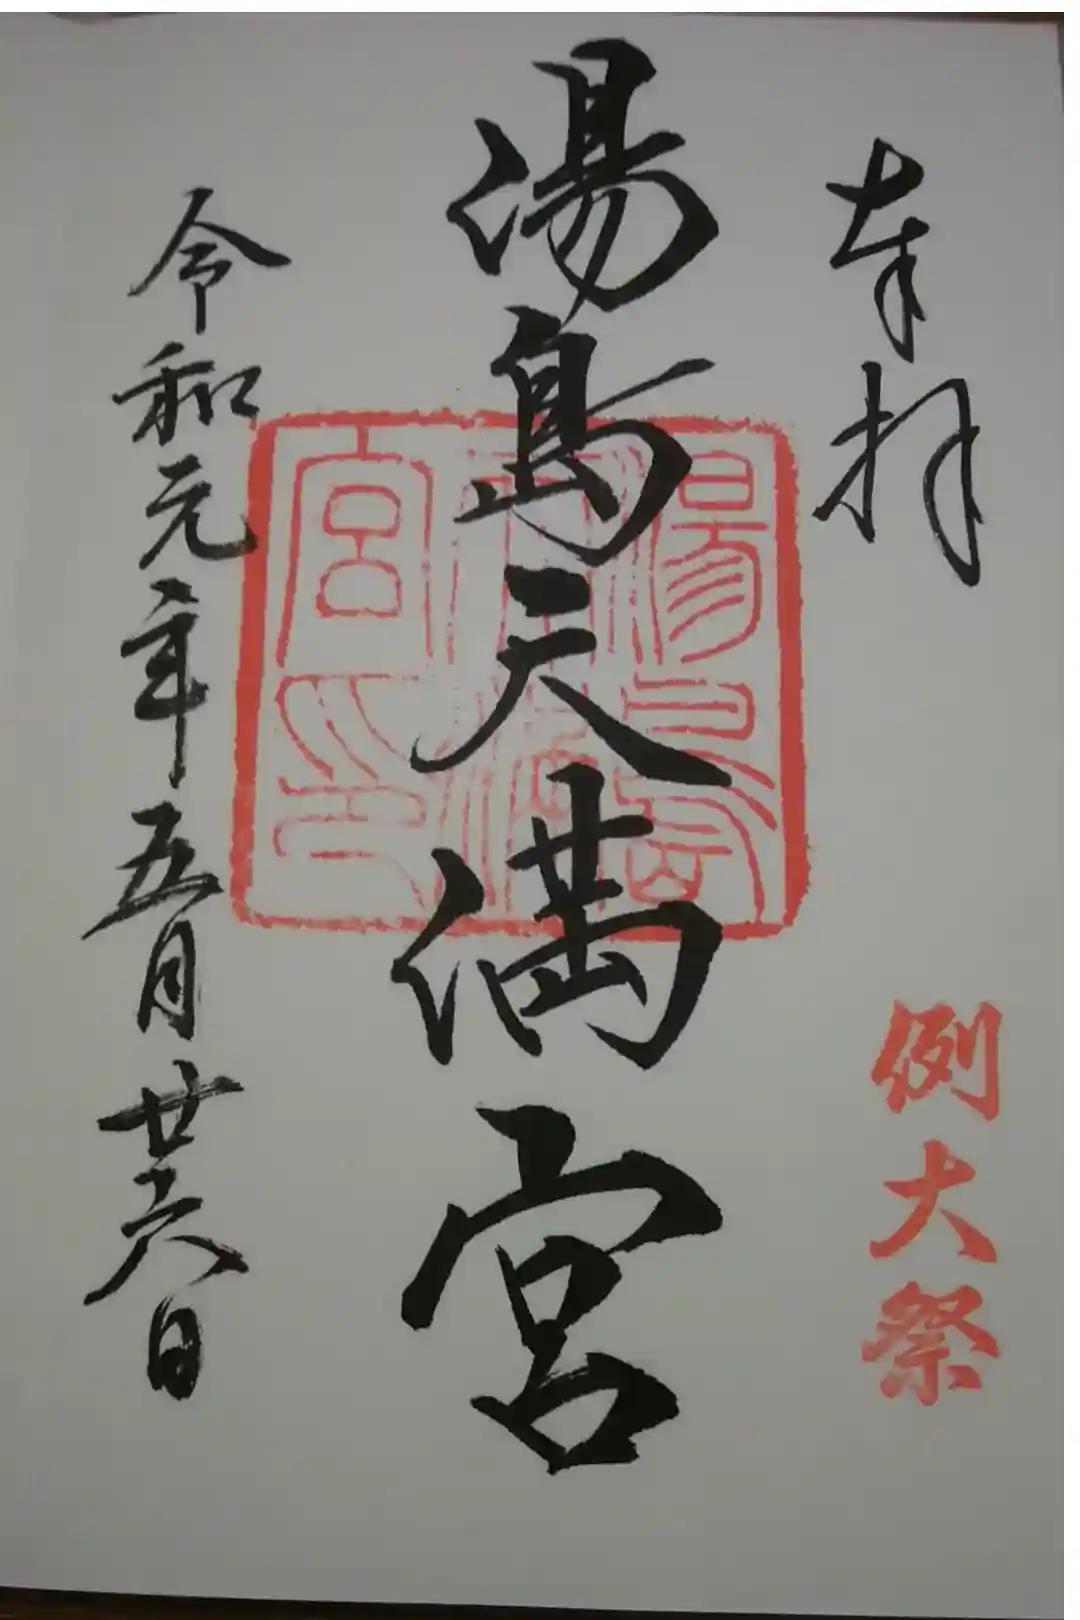 奉拝
例大祭
湯島天満宮
湯島天満宮印
令和元年五月廿六日